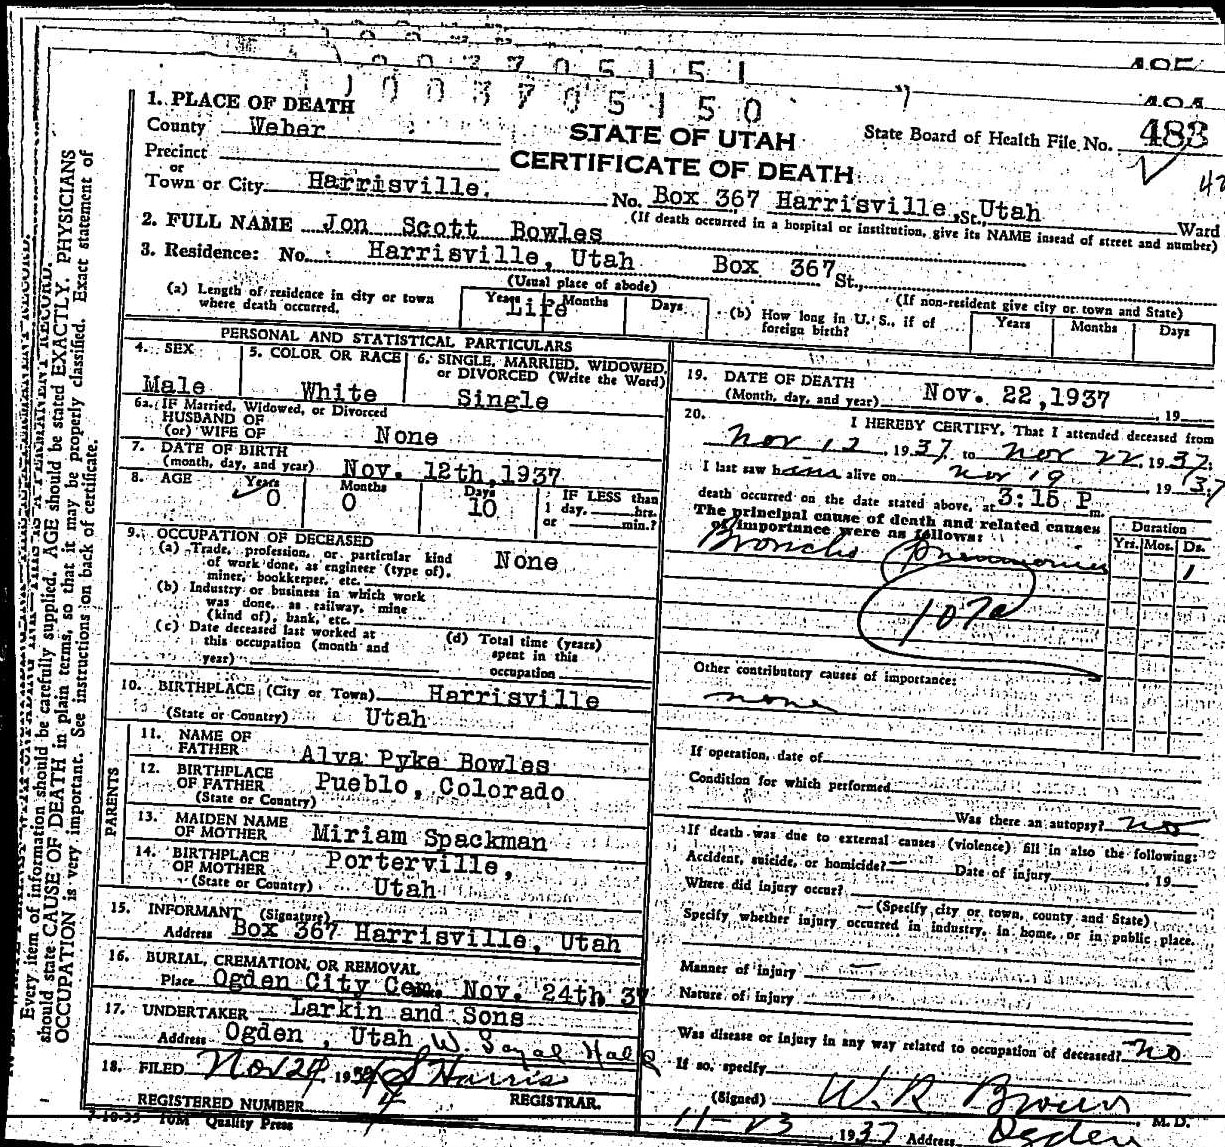 1003705151
1003705150
1. PLACE OF DEATH
County Weber
STATE OF UTAH
State Board of Health File No. 483
Precinct
or
CERTIFICATE OF DEATH
Town or City Harrisville. No. Box 367 Harrisville, St., Utah Ward
(If death occurred in a hospital or institution, give its NAME insead of street and number)
2. FULL NAME Jon Scott Bowles
3. Residence: No. Harrisville, Utah Box 367 St.,
(Usual place of abode)
(If non-resident give city or town and State)
(a) Length of residence in city or town where death occurred. Years Months Days
Life
(b) How long in U. S., if of foreign birth? Years Months Days
PERSONAL AND STATISTICAL PARTICULARS
4. SEX
Male
5. COLOR OR RACE
White
6. SINGLE, MARRIED, WIDOWED,
or DIVORCED (Write the Word)
Single
6a. IF Married, Widowed, or Divorced
HUSBAND OF
(or) WIFE OF None
7. DATE OF BIRTH
(month, day, and year) Nov. 12th, 1937
8. AGE Years Months Days
0 0 10
IF LESS than
1 day, hrs.
or min.?
9. OCCUPATION OF DECEASED
(a) Trade, profession, or particular kind
of work done, as engineer (type of),
miner, bookkeeper, etc.
None
(b) Industry or business in which work
was done, as railway, mine
(kind of), bank, etc.
(c) Date deceased last worked at
this occupation (month and
year)
(d) Total time (years)
spent in this
occupation
10. BIRTHPLACE (City or Town) Harrisville
(State or Country) Utah
PARENTS
11. NAME OF
FATHER Alva Pyke Bowles
12. BIRTHPLACE
OF FATHER Pueblo, Colorado
(State or Country)
13. MAIDEN NAME
OF MOTHER Miriam Spackman
14. BIRTHPLACE
OF MOTHER Porterville,
(State or Country) Utah
15. INFORMANT (Signature)
Address Box 367 Harrisville, Utah
16. BURIAL, CREMATION, OR REMOVAL
Place Ogden City Cem. Nov. 24th 37
17. UNDERTAKER Larkin and Sons
Address Ogden, Utah
18. FILED Nov 24, 19 Harris
REGISTERED NUMBER REGISTRAR.
10M Quality Press
19. DATE OF DEATH
(Month, day, and year) Nov. 22, 1937 , 19
20. I HEREBY CERTIFY, That I attended deceased from
Nov 12, 1937 to Nov 22, 1937;
I last saw him alive on Nov 19 1937
death occurred on the date stated above, at 3:15 P m.
The principal cause of death and related causes
of importance were as follows:
Duration
Yrs. Mos. Ds.
Broncho Pneumonia 1
107a
Other contributory causes of importance:
none
If operation, date of
Condition for which performed
Was there an autopsy? no
If death was due to external causes (violence) fill in also the following:
Accident, suicide, or homicide? — Date of injury 19
Where did injury occur?
(Specify city or town, county and State)
Specify whether injury occurred in industry, in home, or in public place.
Manner of injury —
Nature of injury —
Was disease or injury in any way related to occupation of deceased? no
If so, specify
(Signed) W. R. Brown M. D.
11-23 1937 Address Ogden
Every item of information should be carefully supplied. AGE should be stated EXACTLY. PHYSICIANS
should state CAUSE OF DEATH in plain terms, so that it may be properly classified. Exact statement of
OCCUPATION is very important. See instructions on back of certificate.